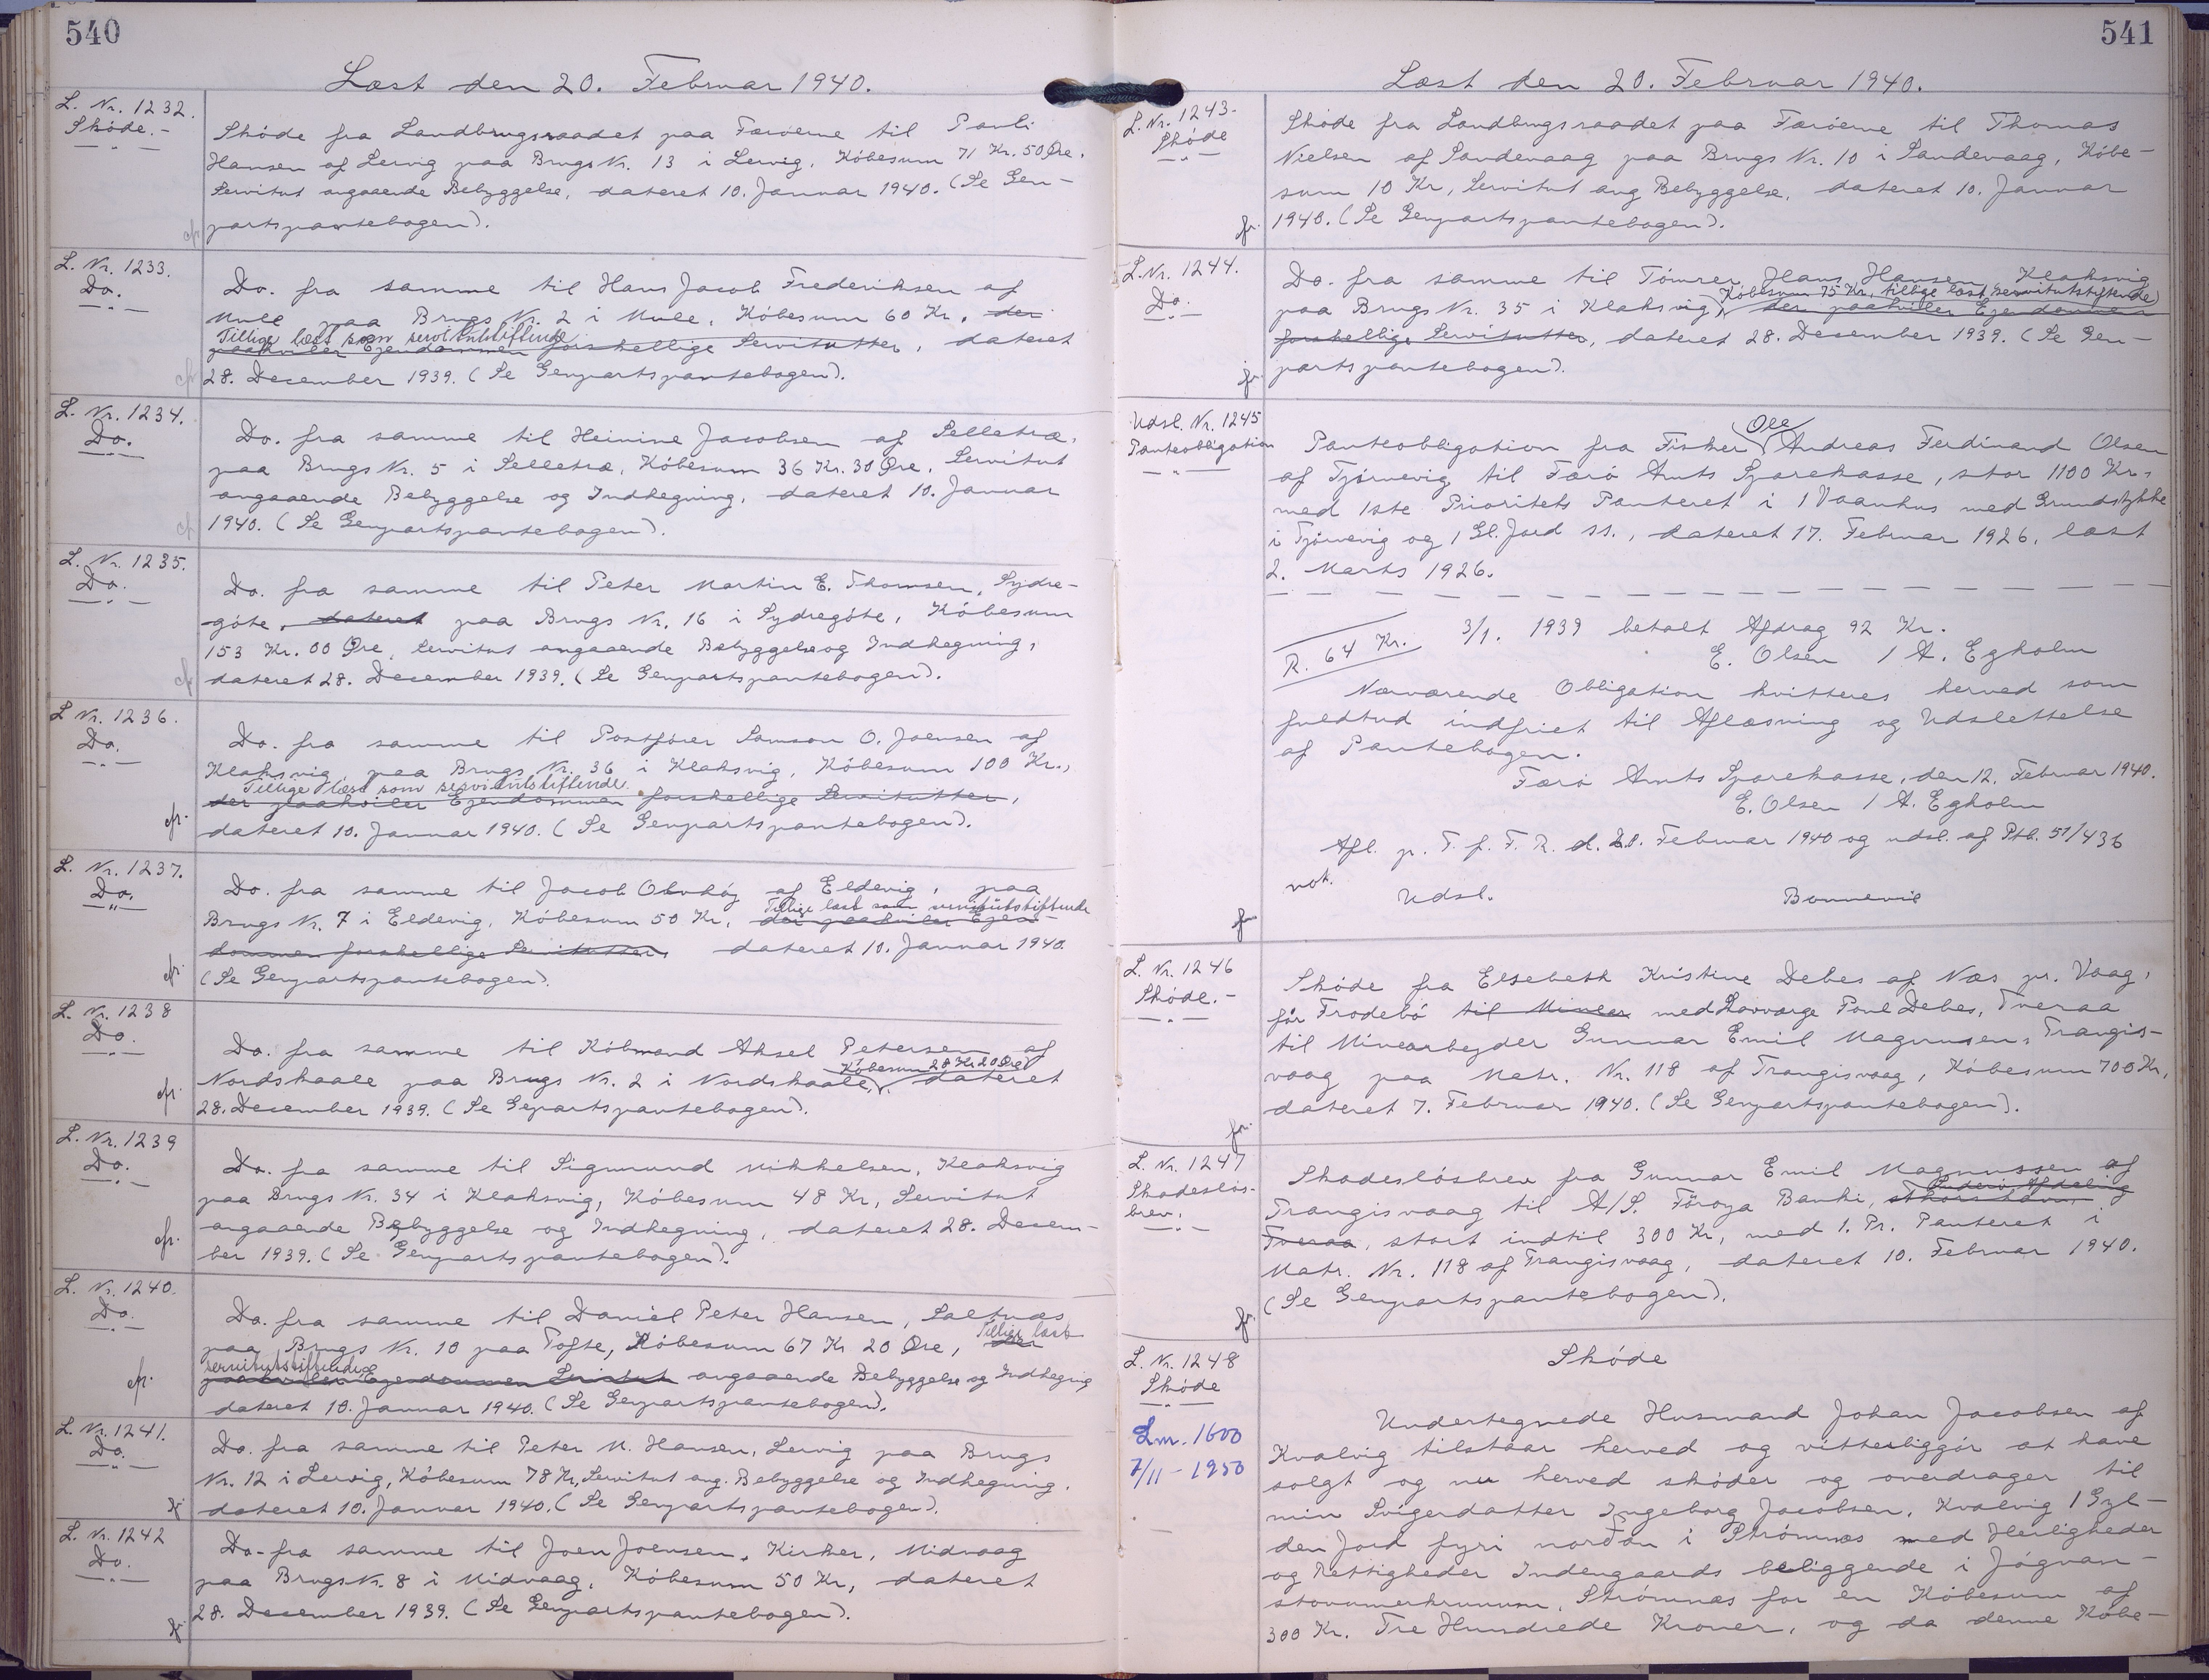 540
Læst den 20. Februar 1940.
L. Nr. 1232.
Skøde.-
Skøde fra Landbrugsraadet paa Færøerne til Pauli
Hansen af Lervig paa Brugs Nr. 13 i Lervig, Købesum 71 Kr. 50 Øre,
Servitut angaaende Bebyggelse, dateret 10. Januar 1940. (Se Gen-
partspantebogen).
L. Nr. 1233.
Do.
Do. fra samme til Hans Jacob Frederiksen af
Mule paa Brugs Nr. 2 i Mule, Købesum 60 Kr, der
Tillige læst som servitutstiftende
paahviler Ejendommen forskellige Servitutter, dateret
28. December 1939. (Se Genpartspantebogen).
L. Nr. 1234.
Do.
Do. fra samme til Heinine Jacobsen af Selletræ,
paa Brugs Nr. 5 i Selletræ, Købesum 36 Kr. 30 Øre, Servitut
angaaende Bebyggelse og Indhegning, dateret 10. Januar
1940. (Se Genpartspantebogen).
L. Nr. 1235.
Do.
Do. fra samme til Peter Martin E. Thomsen, Sydre-
gøte, dateret paa Brugs Nr. 16 i Sydregøte, Købesum
153 Kr. 00 Øre, Servitut angaaende Bebyggelse og Indhegning,
dateret 28. December 1939. (Se Genpartspantebogen).
L Nr. 1236.
Do.
Do. fra samme til Postfører Samson O. Joensen af
Klaksvig, paa Brugs Nr. 36 i Klaksvig, Købesum 100 Kr.,
Tillige læst som servitutstiftende.
der paahviler Ejendommen forskellige Servitutter,
dateret 10. Januar 1940. (Se Genpartspantebogen).
L. Nr. 1237.
Do.
Do. fra samme til Jacob Olvhøj af Eldevig, paa
Tillige læst som servitutstiftende
Brugs Nr. 7 i Eldevig, Købesum 50 Kr, der paahviler Ejen-
dommen forskellige Servitutter, dateret 10. Januar 1940.
(Se Genpartspantebogen).
L. Nr. 1238
Do.
Do. fra samme til Købmand Aksel Petersen af
Købesum 28 Kr 20 Øre
Nordskaale paa Brugs Nr. 2 i Nordskaale, dateret
28. December 1939. (Se Gepartspantebogen).
L. Nr. 1239
Do.
Do. fra samme til Sigmund Mikkelsen, Klaksvig
paa Brugs Nr. 34 i Klaksvig, Købesum 48 Kr, Servitut
angaaende Bebyggelse og Indhegning, dateret 28. Decem-
ber 1939. (Se Genpartspantebogen).
L. Nr. 1240.
Do.
Do. fra samme til Daniel Peter Hansen, Saltnæs
paa Brugs Nr. 10 paa Tofte, Købesum 67 Kr 20 Øre, der
Tillige læst
servitutstiftende
paahviler Ejendommen Servitut angaaende Bebyggelse og Indhegnig
dateret 10. Januar 1940. (Se Genpartspantebogen).
L. Nr. 1241.
Do.
Do. fra samme til Peter M. Hansen, Lervig paa Brugs
Nr. 12 i Lervig, Købesum 78 Kr, Servitut ang. Bebyggelse og Indhegning,
dateret 10. Januar 1940. (Se Genpartspantebogen).
L. Nr. 1242
Do.
Do- fra samme til Joen Joensen, Kirker, Midvaag
paa Brugs Nr. 8 i Midvaag, Købesum 50 Kr, dateret
28. December 1939. (Se Genpartspantebogen).
541
Læst den 20. Februar 1940.
L. Nr. 1243-
Skøde
Skøde fra Landbrugsraadet paa Færøerne til Thomas
Nielsen af Sandevaag paa Brugs Nr. 10 i Sandevaag, Købe-
sum 10 Kr, Servitut ang Bebyggelse, dateret 10. Januar
1940. (Se Genpartspantebogen).
L. Nr. 1244.
Do.
Do. fra samme til Tømrer Hans Hansen Klaksvig
Købesum 75 Kr, tillige læst servitutstiftende
paa Brugs Nr. 35 i Klaksvig, der paahviler Ejendommen
forskellige Servitutter, dateret 28. December 1939. (Se Gen-
partspantebogen).
Udsl. Nr. 1245
Panteobligation
Ole
Panteobligation fra Fisker Andreas Ferdinand Olsen
af Tjørnevig til Færø Amts Sparekasse, stor 1100 Kr,
med 1ste Prioritets Panteret i 1 Vaanhus med Grundstykke
i Tjørnevig og 1 Gl. Jord ss., dateret 17. Februar 1926, læst
2. Marts 1926.
R. 64 Kr.
3/1. 1939 betalt Afdrag 92 Kr.
E. Olsen / A. Egholm
Nærværende Obligation kvitteres herved som
fuldtud indfriet til Aflæsning og Udslettelse
af Pantebogen.
Færø Amts Sparekasse, den 12. Februar 1940.
E. Olsen / A. Egholm
Afl. p. T. f. F. R. d. 20. Februar 1940 og udsl. af Ptb. 51/436
not.
Udsl.
Bonnevie
L. Nr. 1246
Skøde.-
Skøde fra Elsebeth Kristine Debes af Næs pr. Vaag,
før Frodebø til Minear med Lavværge Poul Debes, Tveraa
til Minearbejder Gunnar Emil Magnussen, Trangis-
vaag paa Matr. Nr. 118 af Trangisvaag, Købesum 700 Kr,
dateret 7. Februar 1940. (Se Genpartspantebogen).
L. Nr. 1247
Skadesløs-
brev.
Skadesløsbrev fra Gunnar Emil Magnussen af
Suderø Afdeling
Trangisvaag til A/S. Føroya Banki, Thorshavn,
Tveraa, stort indtil 300 Kr, med 1. Pr. Panteret i
Matr. Nr. 118 af Trangisvaag, dateret 10. Februar 1940.
(Se Genpartspantebogen).
L. Nr. 1248
Skøde
Lm. 1600
7/11-1950
Skøde
Undertegnede Husmand Johan Jacobsen af
Kvalvig tilstaar herved og vitterliggør at have
solgt og nu herved skøder og overdrager til
min Svigerdatter Ingeborg Jacobsen, Kvalvig 1 Gyl-
den Jord fyri norðan i Strømnæs med Herligheder
og Rettigheder Indengaards beliggende i Jógvan-
stovumerkrunum, Strømnæs for en Købesum af
300 Kr. Tre Hundrede Kroner, og da denne Købe-